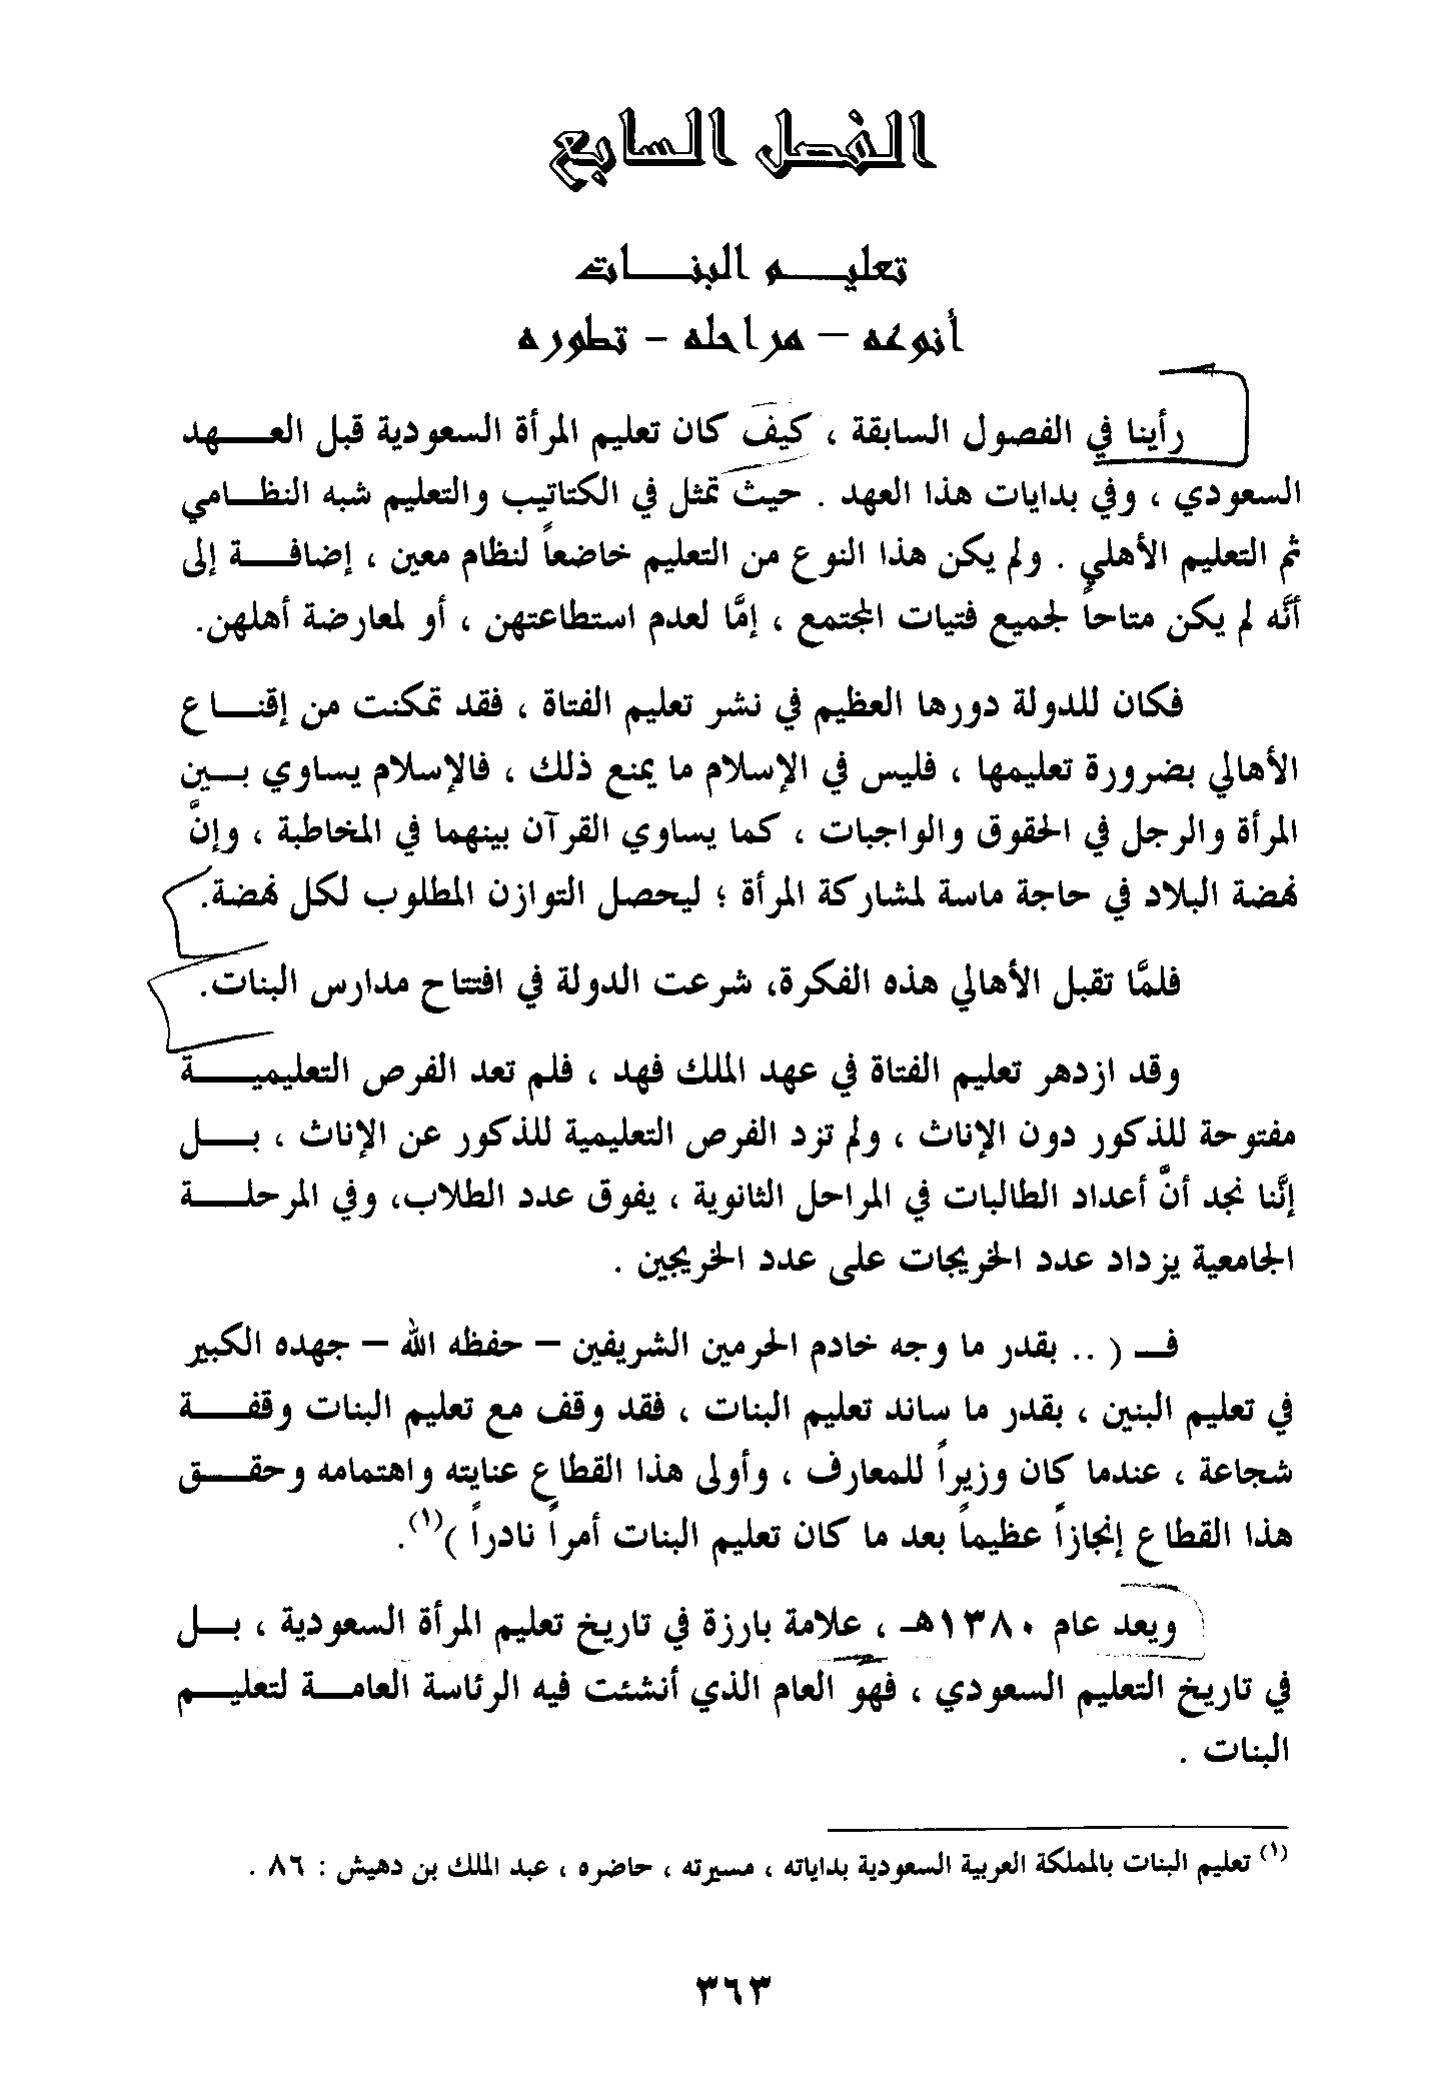 الفصل السابع
تعليم البنات
أنوعه – مراحله - تطوره
رأينا في الفصول السابقة ، كيف كان تعليم المرأة السعودية قبل العهد
السعودي ، وفي بدايات هذا العهد . حيث تمثل في الكتاتيب والتعليم شبه النظامي
ثم التعليم الأهلي . ولم يكن هذا النوع من التعليم خاضعاً لنظام معين ، إضافة إلى
أنَّه لم يكن متاحاً لجميع فتيات المجتمع ، إمَّا لعدم استطاعتهن ، أو لمعارضة أهلهن.
فكان للدولة دورها العظيم في نشر تعليم الفتاة ، فقد تمكنت من إقناع
الأهالي بضرورة تعليمها ، فليس في الإسلام ما يمنع ذلك ، فالإسلام يساوي بين
المرأة والرجل في الحقوق والواجبات ، كما يساوي القرآن بينهما في المخاطبة ، وإنَّ
نهضة البلاد في حاجة ماسة لمشاركة المرأة ؛ ليحصل التوازن المطلوب لكل نهضة.
فلمَّا تقبل الأهالي هذه الفكرة، شرعت الدولة في افتتاح مدارس البنات.
وقد ازدهر تعليم الفتاة في عهد الملك فهد ، فلم تعد الفرص التعليمية
مفتوحة للذكور دون الإناث ، ولم تزد الفرص التعليمية للذكور عن الإناث ، بل
إنَّنا نجد أنَّ أعداد الطالبات في المراحل الثانوية ، يفوق عدد الطلاب، وفي المرحلة
الجامعية يزداد عدد الخريجات على عدد الخريجين .
فـ ( .. بقدر ما وجه خادم الحرمين الشريفين – حفظه الله – جهده الكبير
في تعليم البنين ، بقدر ما ساند تعليم البنات ، فقد وقف مع تعليم البنات وقفة
شجاعة ، عندما كان وزيراً للمعارف ، وأولى هذا القطاع عنايته واهتمامه وحقق
هذا القطاع إنجازاً عظيماً بعد ما كان تعليم البنات أمراً نادراً )(١).
ويعد عام ١٣٨٠هـ ، علامة بارزة في تاريخ تعليم المرأة السعودية ، بل
في تاريخ التعليم السعودي ، فهو العام الذي أنشئت فيه الرئاسة العامة لتعليم
البنات .
(١) تعليم البنات بالمملكة العربية السعودية بداياته ، مسيرته ، حاضره ، عبد الملك بن دهيش : ٨٦ .
٣٦٣